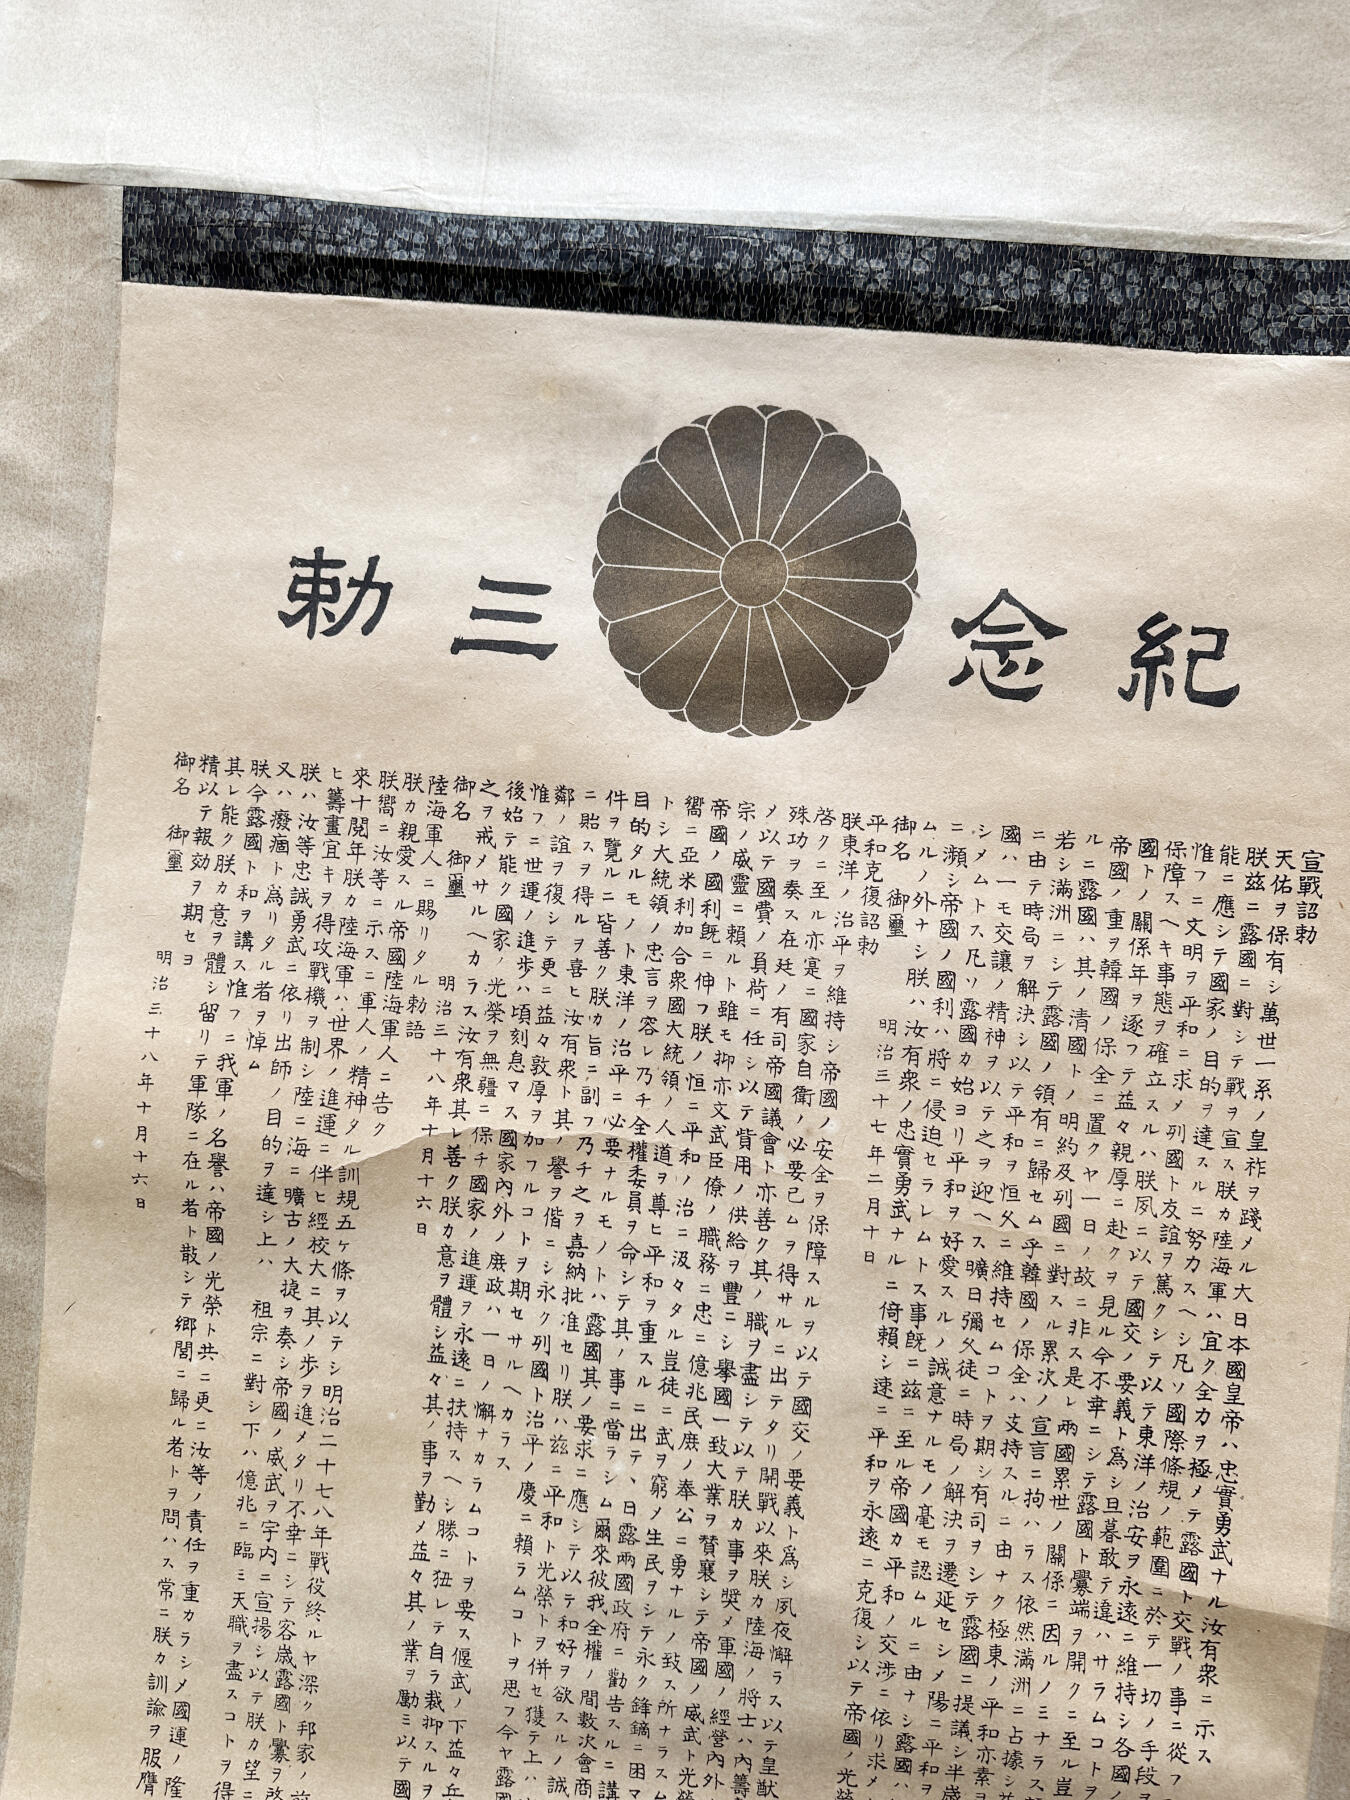 紀念三勅
宣戰詔勅
天佑ヲ保有シ萬世一系ノ皇祚ヲ踐メル大日本國皇帝ハ忠實勇武ナル汝有衆ニ示ス
朕茲ニ露國ニ對シテ戰ヲ宣ス朕カ陸海軍ハ宜ク全力ヲ極メテ露國ト交戰ノ事ニ從フ
能ニ應シテ國家ノ目的ヲ達スルニ努力スヘシ凡ソ國際條規ノ範圍ニ於テ一切ノ手段ヲ
惟フニ文明ヲ平和ニ求メ列國ト友誼ヲ篤クシテ以テ東洋ノ治安ヲ永遠ニ維持シ各國ノ
保障スヘキ事態ヲ確立スルハ朕夙ニ以テ國交ノ要義ト爲シ旦暮敢テ違ハサラムコトヲ
國トノ關係年ヲ逐フテ益々親厚ニ赴クヲ見ル今不幸ニシテ露國ト釁端ヲ開クニ至ル豈
帝國ノ重ヲ韓國ノ保全ニ置クヤ一日ノ故ニ非ス是レ兩國累世ノ關係ニ因ルノミナラス
ルニ露國ハ其ノ清國トノ明約及列國ニ對スル累次ノ宣言ニ拘ハラス依然滿洲ニ占據シ
若シ滿洲ニシテ露國ノ領有ニ歸セム乎韓國ノ保全ハ支持スルニ由ナク極東ノ平和亦素
ニ由テ時局ヲ解決シ以テ平和ヲ恒久ニ維持セムコトヲ期シ有司ヲシテ露國ニ提議シ半歳
國ハ一モ交讓ノ精神ヲ以テ之ヲ迎ヘス曠日彌久徒ニ時局ノ解決ヲ遷延セシメ陽ニ平和ヲ
シメムトス凡ソ露國カ始ヨリ平和ヲ好愛スルノ誠意ナルモノ毫モ認ムルニ由ナシ露國ハ
ニ瀕シ帝國ノ國利ハ將ニ侵迫セラレムトス事既ニ茲ニ至ル帝國カ平和ノ交渉ニ依リ求メ
ムルノ外ナシ朕ハ汝有衆ノ忠實勇武ナルニ倚賴シ速ニ平和ヲ永遠ニ克復シ以テ帝國ノ光
御名 御璽
明治三十七年二月十日
平和克復詔勅
朕東洋ノ治平ヲ維持シ帝國ノ安全ヲ保障スルヲ以テ國交ノ要義ト爲シ夙夜懈ラス以テ皇猷
啓クニ至ル亦寔ニ國家自衛ノ必要已ムヲ得サルニ出テタリ開戰以來朕カ陸海ノ將士ハ内籌
殊功ヲ奏ス在廷ノ有司帝國議會ト亦善ク其ノ職ヲ盡シテ以テ朕カ事ヲ奬メ軍國ノ經營内外
メ以テ國費ノ負荷ニ任シ以テ貲用ノ供給ヲ豐ニシ擧國一致大業ヲ贊襄シテ帝國ノ威武ト光
宗ノ威靈ニ賴ルト雖モ抑亦文武臣僚ノ職務ニ忠ニ億兆民庶ノ奉公ニ勇ナルノ致ス所ナラス
帝國ノ國利既ニ伸フ朕ノ恒ニ平和ノ治ニ汲々タル豈徒ニ武ヲ窮メ生民ヲシテ永ク鋒鏑ニ困マ
嚮ニ亞米利加合衆國大統領ノ人道ヲ尊ヒ平和ヲ重スルニ出テ、日露兩國政府ニ勸告スルニ講
トシ大統領ノ忠言ヲ容レ乃チ全權委員ヲ命シテ其ノ事ニ當ラシム爾來彼我全權ノ間數次會商
目的タルモノト東洋ノ治平ニ必要ナルモノトハ露國其ノ要求ニ應シテ以テ和好ヲ欲スルノ誠
件ヲ覽ルニ皆善ク朕カ旨ニ副フ乃チ之ヲ嘉納批准セリ朕ハ茲ニ平和ト光榮トヲ併セ獲テ上ハ
ニ貽スヲ得ルヲ喜ヒ汝有衆ト其ノ譽ヲ偕ニシ永ク列國ト治平ノ慶ニ賴ラムコトヲ思フ今ヤ露國
鄰ノ誼ヲ復シテ更ニ益々敦厚ヲ加フルコトヲ期セサルヘカラス
惟フニ世運ノ進歩ハ頃刻息マス國家内外ノ庶政ハ一日ノ懈ナカラムコトヲ要ス偃武ノ下益々兵
後始テ能ク國家ノ光榮ヲ無疆ニ保チ國家ノ進運ヲ永遠ニ扶持スヘシ勝ニ狃レテ自ラ裁抑スルヲ
之ヲ戒メサルヘカラス汝有衆其レ善ク朕カ意ヲ體シ益々其ノ事ヲ勤メ益々其ノ業ヲ勵ミ以テ國
御名 御璽
明治三十八年十月十六日
陸海軍人ニ賜リタル勅語
朕カ親愛スル帝國陸海軍人ニ告ク
朕嚮ニ汝等ニ示スニ軍人ノ精神タル訓規五ヶ條ヲ以テシ明治二十七八年戰役終ルヤ深ク邦家ノ前
來十閲年朕カ陸海軍ハ世界ノ進運ニ伴ヒ經校大ニ其ノ歩ヲ進メタリ不幸ニシテ客歳露國ト釁ヲ啓
ヒ籌畫宜キヲ得攻戰機ヲ制シ陸ニ海ニ曠古ノ大捷ヲ奏シ帝國ノ威武ヲ宇内ニ宣揚シ以テ朕カ望ニ
朕ハ汝等忠誠勇武ニ依リ出師ノ目的ヲ達シ上ハ 祖宗ニ對シ下ハ億兆ニ臨ミ天職ヲ盡スコトヲ得
又ハ癈痼ト爲リタル者ヲ悼ム
朕今露國ト和ヲ講ス惟フニ我軍ノ名譽ハ帝國ノ光榮ト共ニ更ニ汝等ノ責任ヲ重カラシメ國運ノ隆
其レ能ク朕カ意ヲ體シ留リテ軍隊ニ在ル者ト散シテ郷閭ニ歸ル者トヲ問ハス常ニ朕カ訓諭ヲ服膺
精以テ報効ヲ期セヨ
御名 御璽
明治三十八年十月十六日